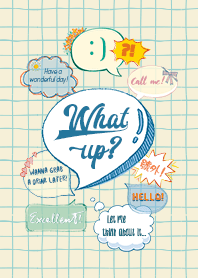 ?!
Have a
wonderful day!
Call me!
What
up?!
WANNA GRAB
A DRINK LATER?
HELLO!
Excellent!
Let me
think about it...